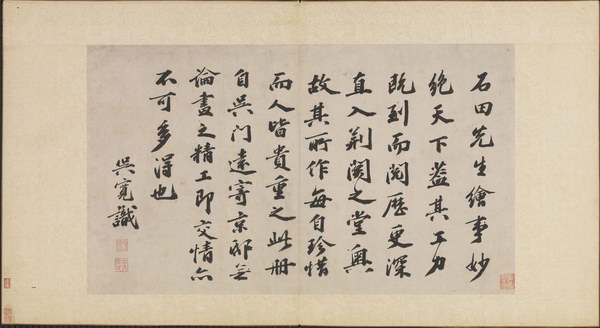 石田先生繪事妙
絶天下蓋其工力
既到而閱歷更深
直入荆關之堂奥
故其所作每自珍惜
而人皆貴重之此册
自吳门遠寄京邸無
論畫之精工即交情亦
不可多得也
吳寬識